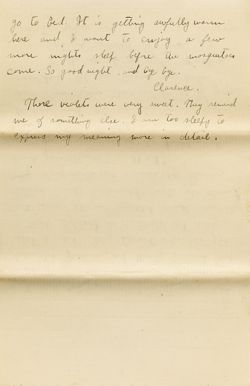 go to bed. It is getting awfully warm
here and I want to enjoy a few
more nights sleep before the mosquitoes
come. So good night and bye bye.
Clarence.
Those violets were very sweet. They remind
me of something else. I am too sleepy to
express my meaning more in detail.